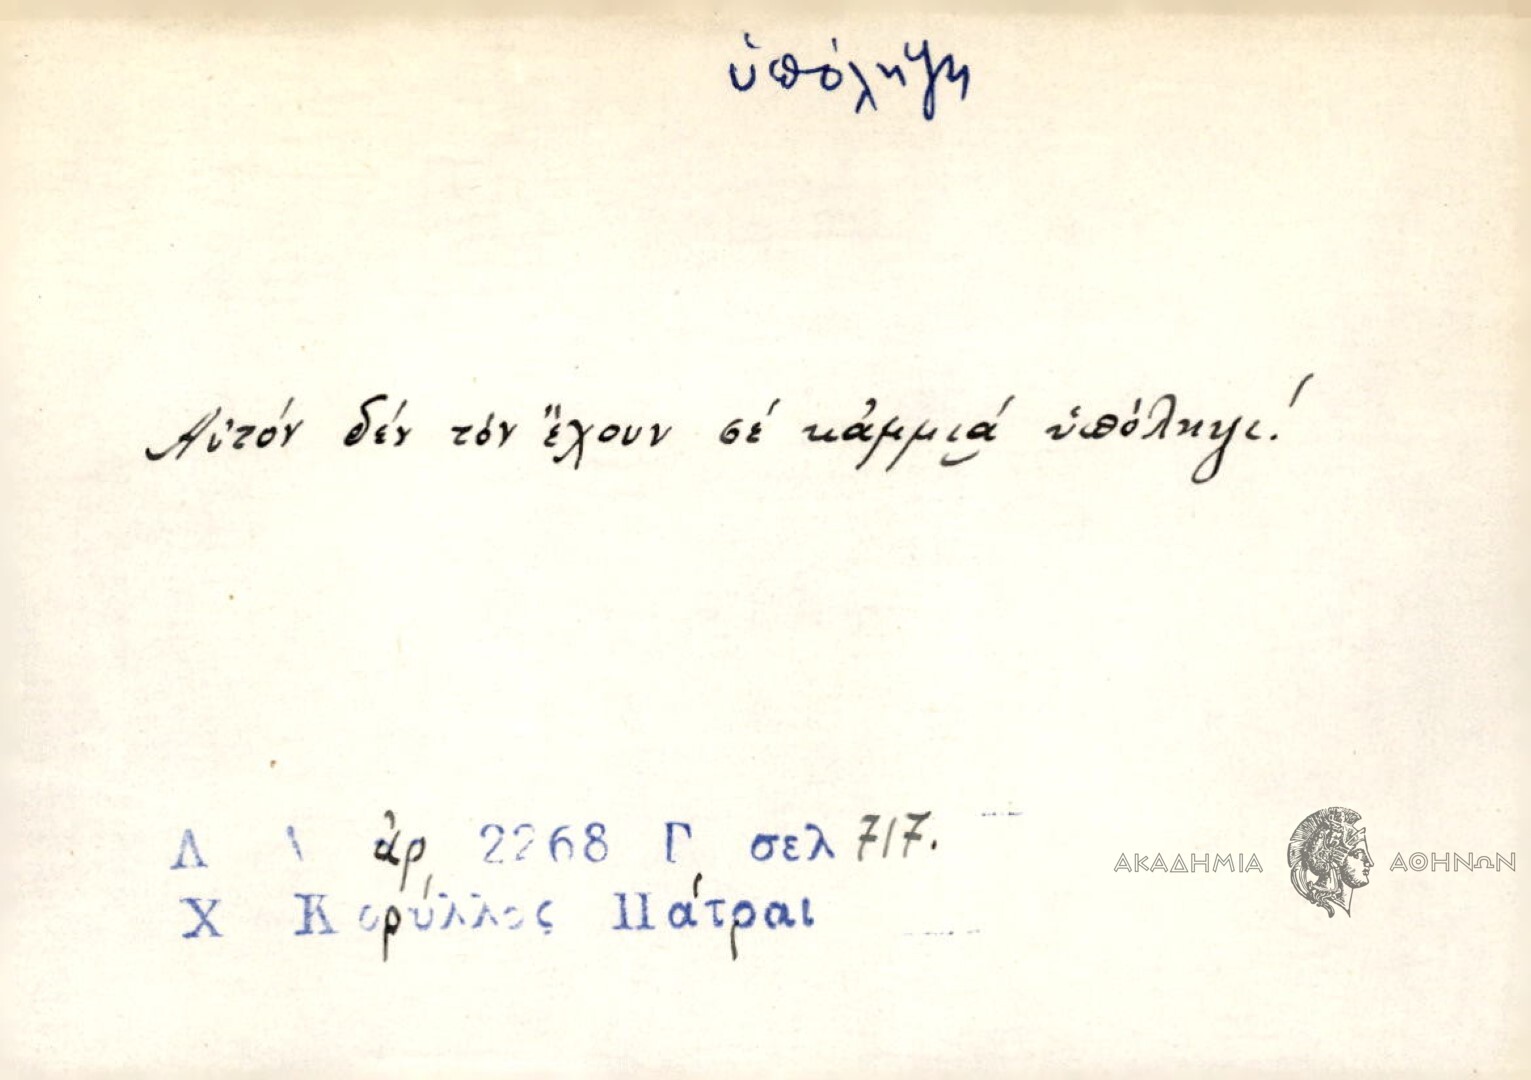 ὑπόληψη
Αὐτόν δέν τόν ἔχουν σέ κἀμμιά ὑπόληψι!
Λ Α ἀρ 2268 Γ σελ 717.
Χ Κορύλλος Πάτραι
ΑΚΑΔΗΜΙΑ ΑΘΗΝΩΝ